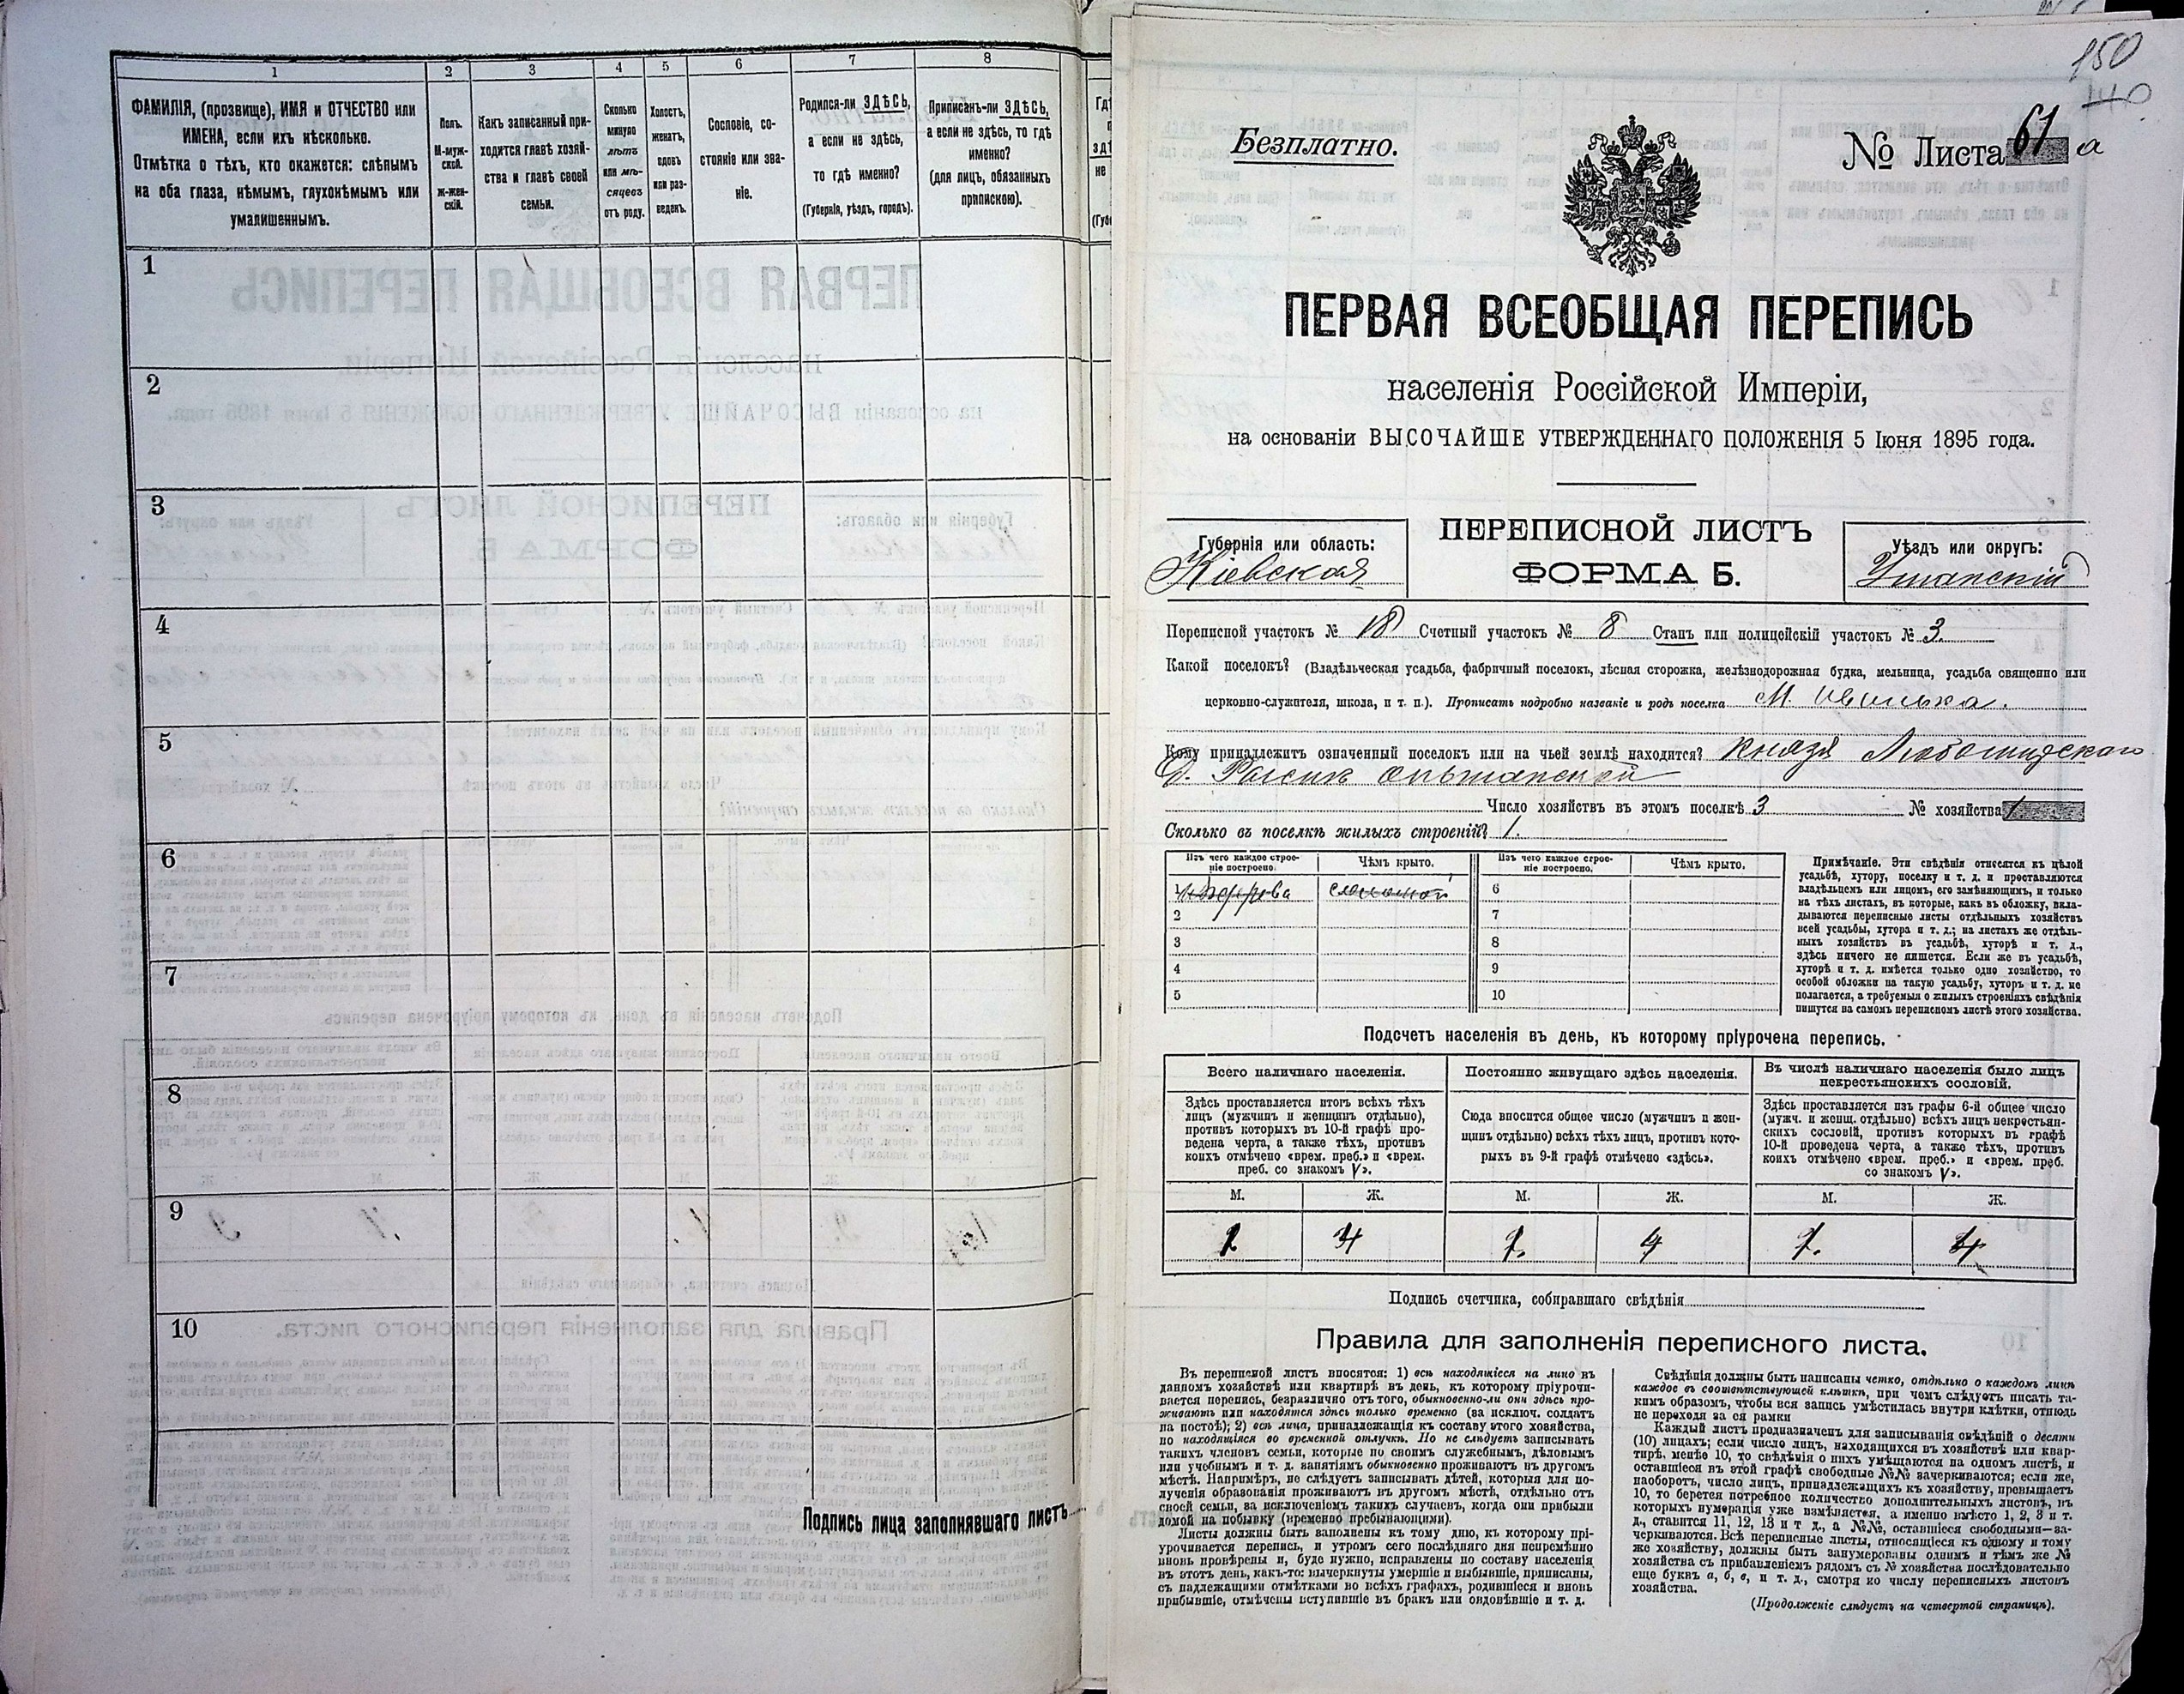 1 2 3 4 5 6 7 8
ФАМИЛІЯ, (прозвище), ИМЯ и ОТЧЕСТВО или
ИМЕНА, если ихъ нѣсколько.
Отмѣтка о тѣхъ, кто окажется: слѣпымъ
на оба глаза, нѣмымъ, глухонѣмымъ или
умалишеннымъ.
Полъ.
М-муж-
ской.
ж-жен-
скій.
Какъ записанный при-
ходится главѣ хозяй-
ства и главѣ своей
семьи.
Сколько
минуло
лѣтъ
или мѣ-
сяцевъ
отъ роду.
Холостъ,
женатъ,
вдовъ
или раз-
веденъ.
Сословіе, со-
стояніе или зва-
ніе.
Родился-ли ЗДѢСЬ,
а если не здѣсь,
то гдѣ именно?
(Губернія, уѣздъ, городъ).
Приписанъ-ли ЗДѢСЬ,
а если не здѣсь, то гдѣ
именно?
(для лицъ, обязанныхъ
припискою).
1
2
3
4
5
6
7
8
9
10
Подпись лица заполнявшаго листъ
150
Безплатно.
№ Листа 61 а
ПЕРВАЯ ВСЕОБЩАЯ ПЕРЕПИСЬ
населенія Россійской Имперіи,
на основаніи ВЫСОЧАЙШЕ УТВЕРЖДЕННАГО ПОЛОЖЕНІЯ 5 Іюня 1895 года.
Губернія или область:
Кіевская
ПЕРЕПИСНОЙ ЛИСТЪ
ФОРМА Б.
Уѣздъ или округъ:
Уманскій
Переписной участокъ № 18 Счетный участокъ № 8 Станъ или полицейскій участокъ № 3.
Какой поселокъ? (Владѣльческая усадьба, фабричный поселокъ, лѣсная сторожка, желѣзнодорожная будка, мельница, усадьба священно или
церковно-служителя, школа, и т. п.). Прописать подробно названіе и родъ поселка М. Ивонька.
Кому принадлежитъ означенный поселокъ или на чьей землѣ находится? Князя Любомирскаго
Число хозяйствъ въ этомъ поселкѣ 3 № хозяйства 1
Сколько въ поселкѣ жилыхъ строеній? 1.
Изъ чего каждое строе-
ніе построено.
Чѣмъ крыто.
Изъ чего каждое строе-
ніе построено.
Чѣмъ крыто.
1 изъ дерева соломой 6
2 7
3 8
4 9
5 10
Примѣчаніе. Эти свѣдѣнія относятся къ цѣлой
усадьбѣ, хутору, поселку и т. д. и проставляются
владѣльцемъ или лицомъ, его замѣняющимъ, и только
на тѣхъ листахъ, въ которые, какъ въ обложку, вкла-
дываются переписные листы отдѣльныхъ хозяйствъ
всей усадьбы, хутора и т. д.; на листахъ же отдѣль-
ныхъ хозяйствъ въ усадьбѣ, хуторѣ и т. д.,
здѣсь ничего не пишется. Если же въ усадьбѣ,
хуторѣ и т. д. имѣется только одно хозяйство, то
особой обложки на такую усадьбу, хуторъ и т. д. не
полагается, а требуемыя о жилыхъ строеніяхъ свѣдѣнія
пишутся на самомъ переписномъ листѣ этого хозяйства.
Подсчетъ населенія въ день, къ которому пріурочена перепись.
Всего наличнаго населенія.
Здѣсь проставляется итогъ всѣхъ тѣхъ
лицъ (мужчинъ и женщинъ отдѣльно),
противъ которыхъ въ 10-й графѣ про-
ведена черта, а также тѣхъ, противъ
коихъ отмѣчено «врем. преб.» и «врем.
преб. со знакомъ V».
Постоянно живущаго здѣсь населенія.
Сюда вносится общее число (мужчинъ и жен-
щинъ отдѣльно) всѣхъ тѣхъ лицъ, противъ кото-
рыхъ въ 9-й графѣ отмѣчено «здѣсь».
Въ числѣ наличнаго населенія было лицъ
некрестьянскихъ сословій.
Здѣсь проставляется изъ графы 6-й общее число
(мужч. и женщ. отдѣльно) всѣхъ лицъ некрестьян-
скихъ сословій, противъ которыхъ въ графѣ
10-й проведена черта, а также тѣхъ, противъ
коихъ отмѣчено «врем. преб.» и «врем. преб.
со знакомъ V».
М. Ж. М. Ж. М. Ж.
Подпись счетчика, собиравшаго свѣдѣнія
Правила для заполненія переписного листа.
Въ переписной листъ вносятся: 1) всѣ находящіеся на лицо въ
данномъ хозяйствѣ или квартирѣ въ день, къ которому пріурочи-
вается перепись, безразлично отъ того, обыкновенно-ли они здѣсь про-
живаютъ или находятся здѣсь только временно (за исключ. солдатъ
на постоѣ); 2) всѣ лица, принадлежащія къ составу этого хозяйства,
но находящіяся во временной отлучкѣ. Но не слѣдуетъ записывать
такихъ членовъ семьи, которые по своимъ служебнымъ, дѣловымъ
или учебнымъ и т. д. занятіямъ обыкновенно проживаютъ въ другомъ
мѣстѣ. Напримѣръ, не слѣдуетъ записывать дѣтей, которыя для по-
лученія образованія проживаютъ въ другомъ мѣстѣ, отдѣльно отъ
своей семьи, за исключеніемъ такихъ случаевъ, когда они прибыли
домой на побывку (временно пребывающими).
Листы должны быть заполнены къ тому дню, къ которому прі-
урочивается перепись, и утромъ сего послѣдняго дня непремѣнно
вновь провѣрены и, буде нужно, исправлены по составу населенія
въ этотъ день, какъ-то: вычеркнуты умершіе и выбывшіе, приписаны,
съ надлежащими отмѣтками во всѣхъ графахъ, родившіеся и вновь
прибывшіе, отмѣчены вступившіе въ бракъ или овдовѣвшіе и т. д.
Свѣдѣнія должны быть написаны четко, отдѣльно о каждомъ лицѣ
каждое въ соотвѣтствующей клѣткѣ, при чемъ слѣдуетъ писать та-
кимъ образомъ, чтобы вся запись умѣстилась внутри клѣтки, отнюдь
не переходя за ея рамки
Каждый листъ предназначенъ для записыванія свѣдѣній о десяти
(10) лицахъ; если число лицъ, находящихся въ хозяйствѣ или квар-
тирѣ, менѣе 10, то свѣдѣнія о нихъ умѣщаются на одномъ листѣ, и
оставшіеся въ этой графѣ свободные №№ зачеркиваются; если же,
наоборотъ, число лицъ, принадлежащихъ къ хозяйству, превышаетъ
10, то берется потребное количество дополнительныхъ листовъ, въ
которыхъ нумерація уже измѣняется, а именно вмѣсто 1, 2, 3 и т.
д., ставится 11, 12, 13 и т д., а №№, оставшіеся свободными—за-
черкиваются. Всѣ переписные листы, относящіеся къ одному и тому
же хозяйству, должны быть занумерованы однимъ и тѣмъ же №
хозяйства съ прибавленіемъ рядомъ съ № хозяйства послѣдовательно
еще буквъ а, б, в, и т. д., смотря по числу переписныхъ листовъ
хозяйства.
(Продолженіе слѣдуетъ на четвертой страницѣ).